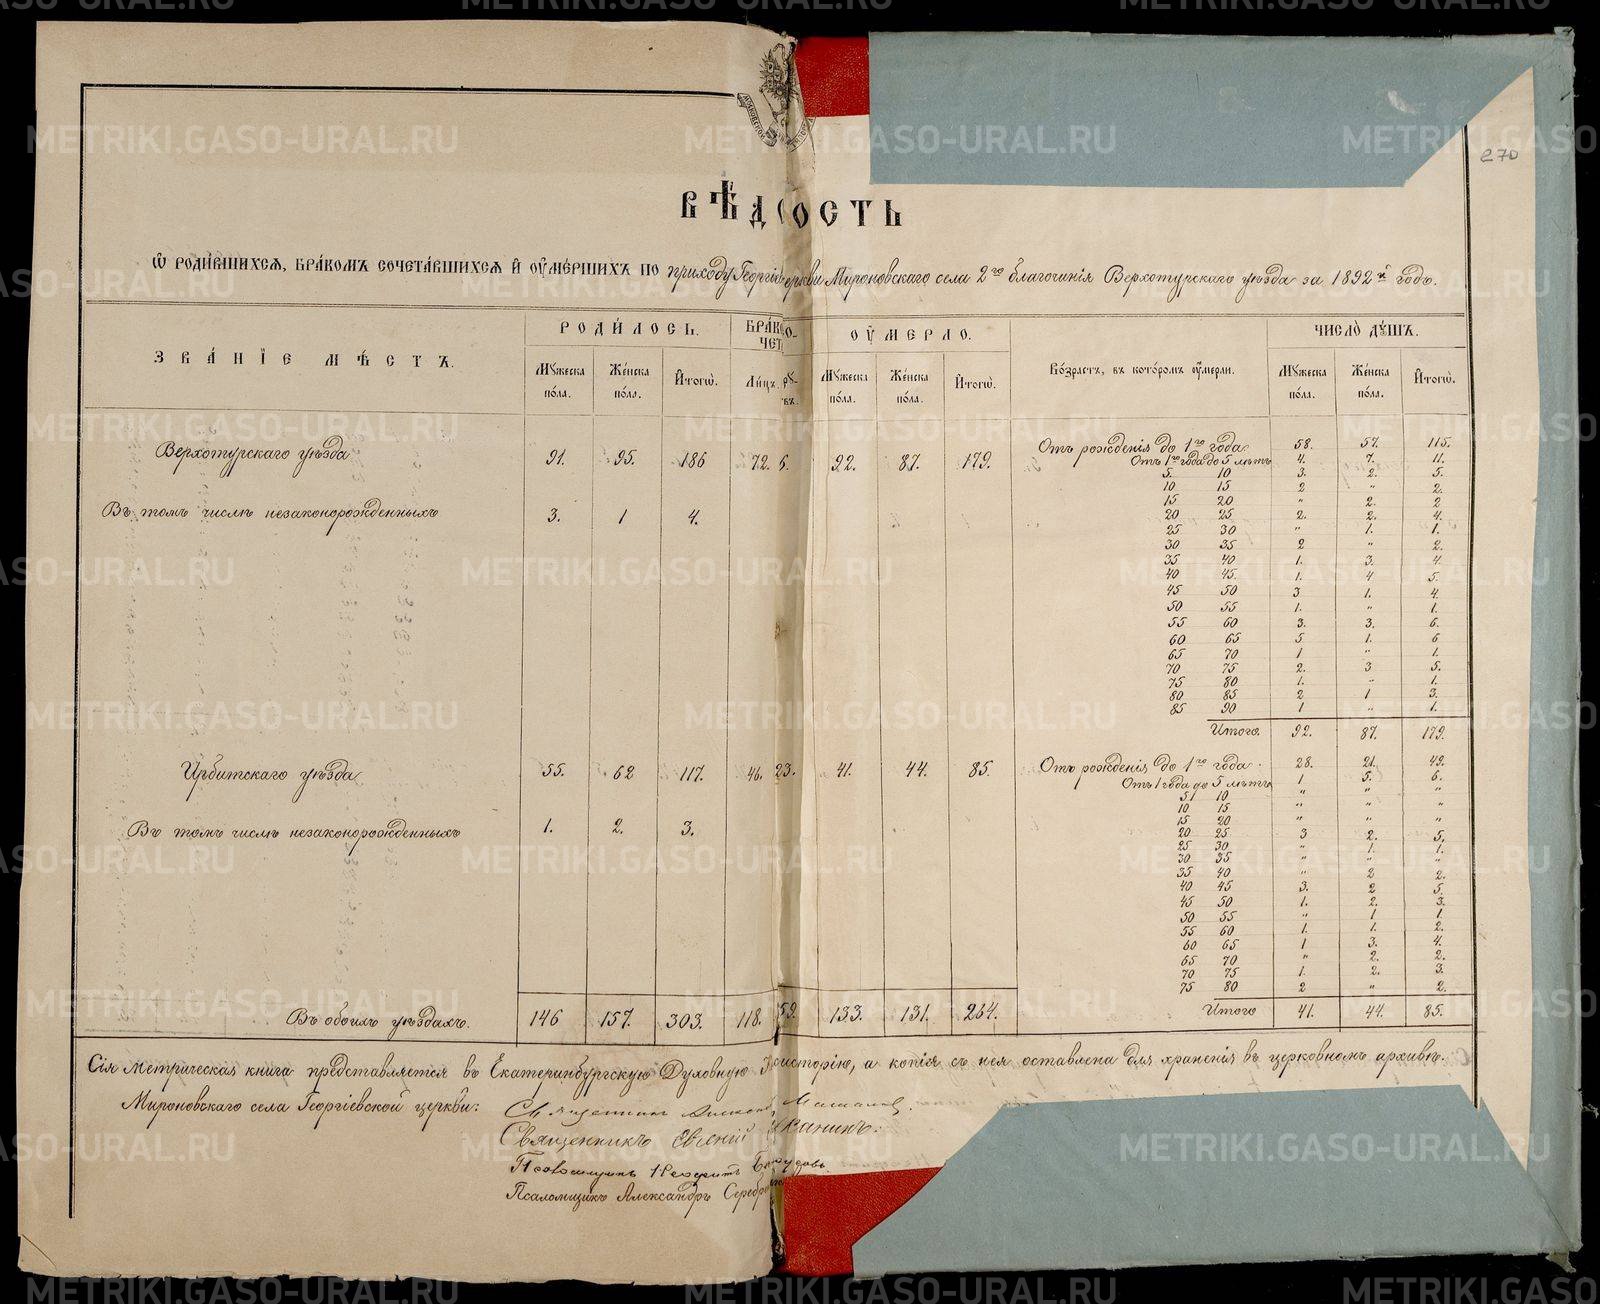 270
ВѢДОСТЬ
Ѡ РОДИ́ВШИХСѦ, БРА́КОМЪ СОЧЕТА́ВШИХСѦ И҆ ОУ҆МЕ́РШИХЪ ПО приходу Георгіевской церкви Мироновскаго села 2го благочинія Верхотурскаго уѣзда за 1892й годъ.
ЗВА́НІЕ МѢ́СТЪ. РОДИ́ЛОСЬ. БРА́КО СОЧЕТ ОУ҆́МЕРЛО. Во́зрастъ, въ кото́ромъ ᲂу҆́мерли. ЧИСЛО̀ ДУ́ШЪ.
Му́жеска по́ла. Же́нска по́ла. И҆тогѡ̀. Ли́цъ. Му́жеска по́ла. Же́нска по́ла. И҆тогѡ̀. Му́жеска по́ла. Же́нска по́ла. И҆тогѡ̀.
Верхотурскаго уѣзда 91. 95. 186 72. 6. 92. 87. 179. Отъ рожденія до 1го года 58. 57. 115.
Отъ 1го года до 5 лѣтъ 4. 7. 11.
5. 10 3. 2. 5.
10 15 2 " 2.
Въ томъ числѣ незаконорожденныхъ 3. 1 4.
15 20 " 2. 2
20 25 2. 2. 4.
25 30 " 1. 1.
30 35 2 " 2.
35 40 1. 3. 4.
40 45. 1. 4 5.
45 50 3 1. 4.
50 55 1. " 1.
55 60 3. 3. 6.
60 65 5 1. 6
65 70 1 " 1.
70 75 2. 3 5.
75 80 1. " 1.
80 85 2 1 3.
85 90 1 " 1.
Итого. 92. 87. 179.
Ирбитскаго уѣзда 55. 62 117. 46. 23. 41. 44. 85. Отъ рожденія до 1го года. 28. 21. 49.
Отъ 1 года до 5 лѣтъ 1 5. 6.
5 10 " " "
10 15 " " "
15 20 " " "
Въ томъ числѣ незаконорожденныхъ 1. 2. 3.
20 25 3 2. 5.
25 30 " 1. 1.
30 35 " " "
35 40 " 2 2.
40 45 3. 2 5.
45 50 1. 2. 3.
50 55 " 1 1.
55 60 1. 1. 2.
60 65 1 3. 4.
65 70 " 2. 2.
70 75 1. 2. 3.
75 80 2 " 2.
Въ обоихъ уѣздахъ. 146 157. 303. 118. 59. 133. 131. 264. Итого 41. 44. 85.
Сія Метрическая книга представляется въ Екатеринбургскую Духовную Консисторію, а копія съ нея оставлена для храненія въ церковномъ архивѣ.
Мироновскаго села Георгіевской церкви:
Священникъ
Священникъ Евсевій
Псаломщикъ
Псаломщикъ Александръ
METRIKI.GASO-URAL.RU